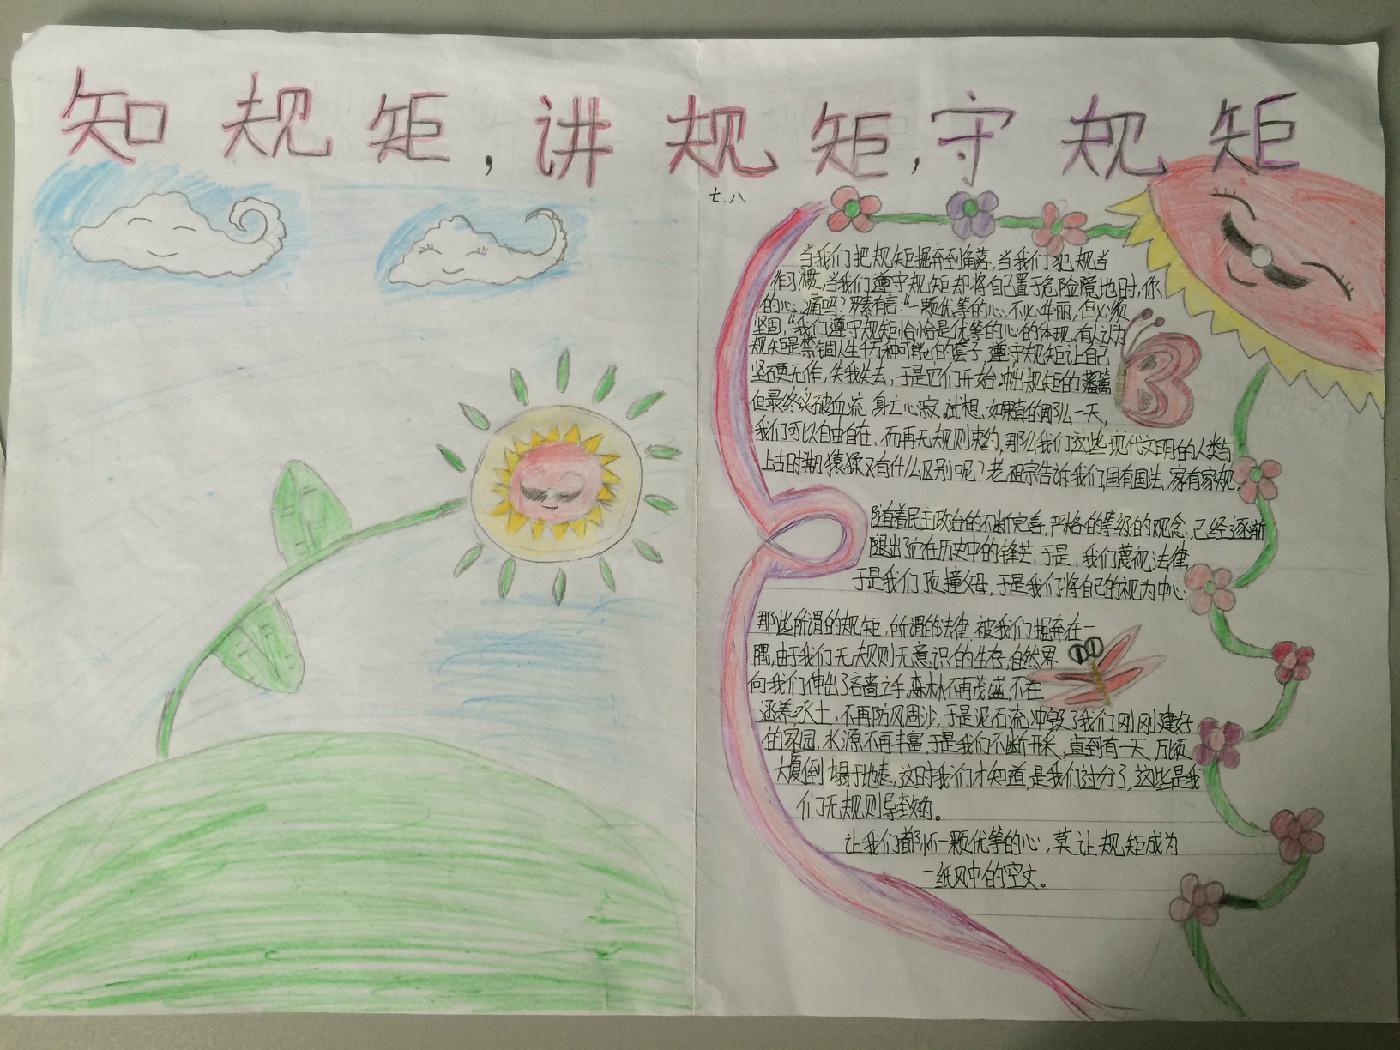 知规矩，讲规矩，守规矩
七.八
当我们把规矩摒弃到角落，当我们犯规当
作习惯，当我们遵守规矩却将自己置于危险境地时，你
的心，痛吗？罗素有言“一颗优等的心，不必华丽，但必须
坚固，”我们遵守规矩恰恰是优等的心的体现。有人认为
规矩是禁锢人生千万种可能性的套子，遵守规矩让自己
于是它们开始冲出规矩的藩篱
但最终头破血流，身亡心寂，试想，如果真的那么一天，
我们可以自由自在，而再无规则束约，那么我们这些现代文明的人类与
上古时期猿猴又有什么区别呢？老祖宗告诉我们，国有国法，家有家规
随着民主政治的不断完善，严格的等级的观念，已经逐渐
退出了它在历史中的锋芒，于是，我们蔑视法律，
于是我们顶撞父母，于是我们将自己的视为中心.
那些所谓的规矩，所谓的法律，被我们摒弃在一
隅，由于我们无规则无意识的生存，自然界
向我们伸出了之手，森林不再茂盛，不在
涵养水土，不再防风固沙，于是泥石流冲毁了我们刚刚建好
的家园，水源不再丰富，于是我们不断开采，直到有一天，万顷
大厦倒塌于地表，这时我们才知道，是我们过分了，这些是我
们无规则导致的。
让我们都怀一颗优等的心，莫让规矩成为
一纸风中的空文。